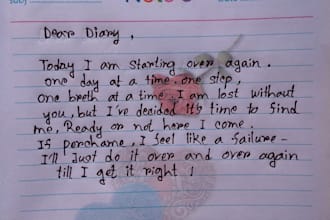 Dear Diary,
Today I am starting over again.
One day at a time. one step.
One breth at a time. I am lost without
you, but I've decided it's time to find
me, Ready or not here I come.
If perchame, I feel like a failure-
I'll Just do it over and over again
till I get it right !